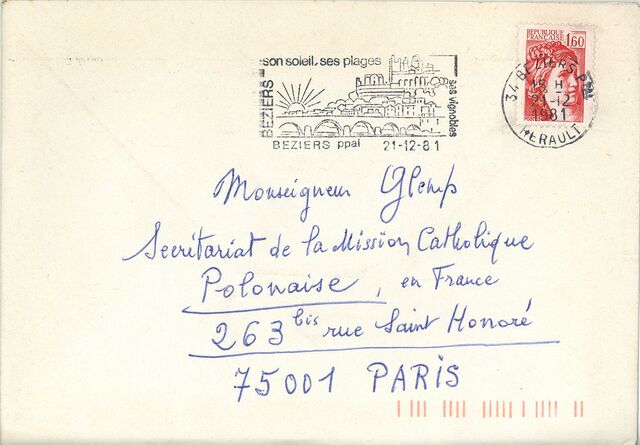 son soleil, ses plages
BEZIERS
ses vignobles
BEZIERS ppal 21-12-81
REPUBLIQUE
FRANÇAISE
1,60
34 BEZIERS Ppal
15 H
21-12
1981
HERAULT
Monseigneur Glemp
Secritariat de la Mission Catholique
Polonaise, en France
263 bis rue Saint Honoré
75001 PARIS